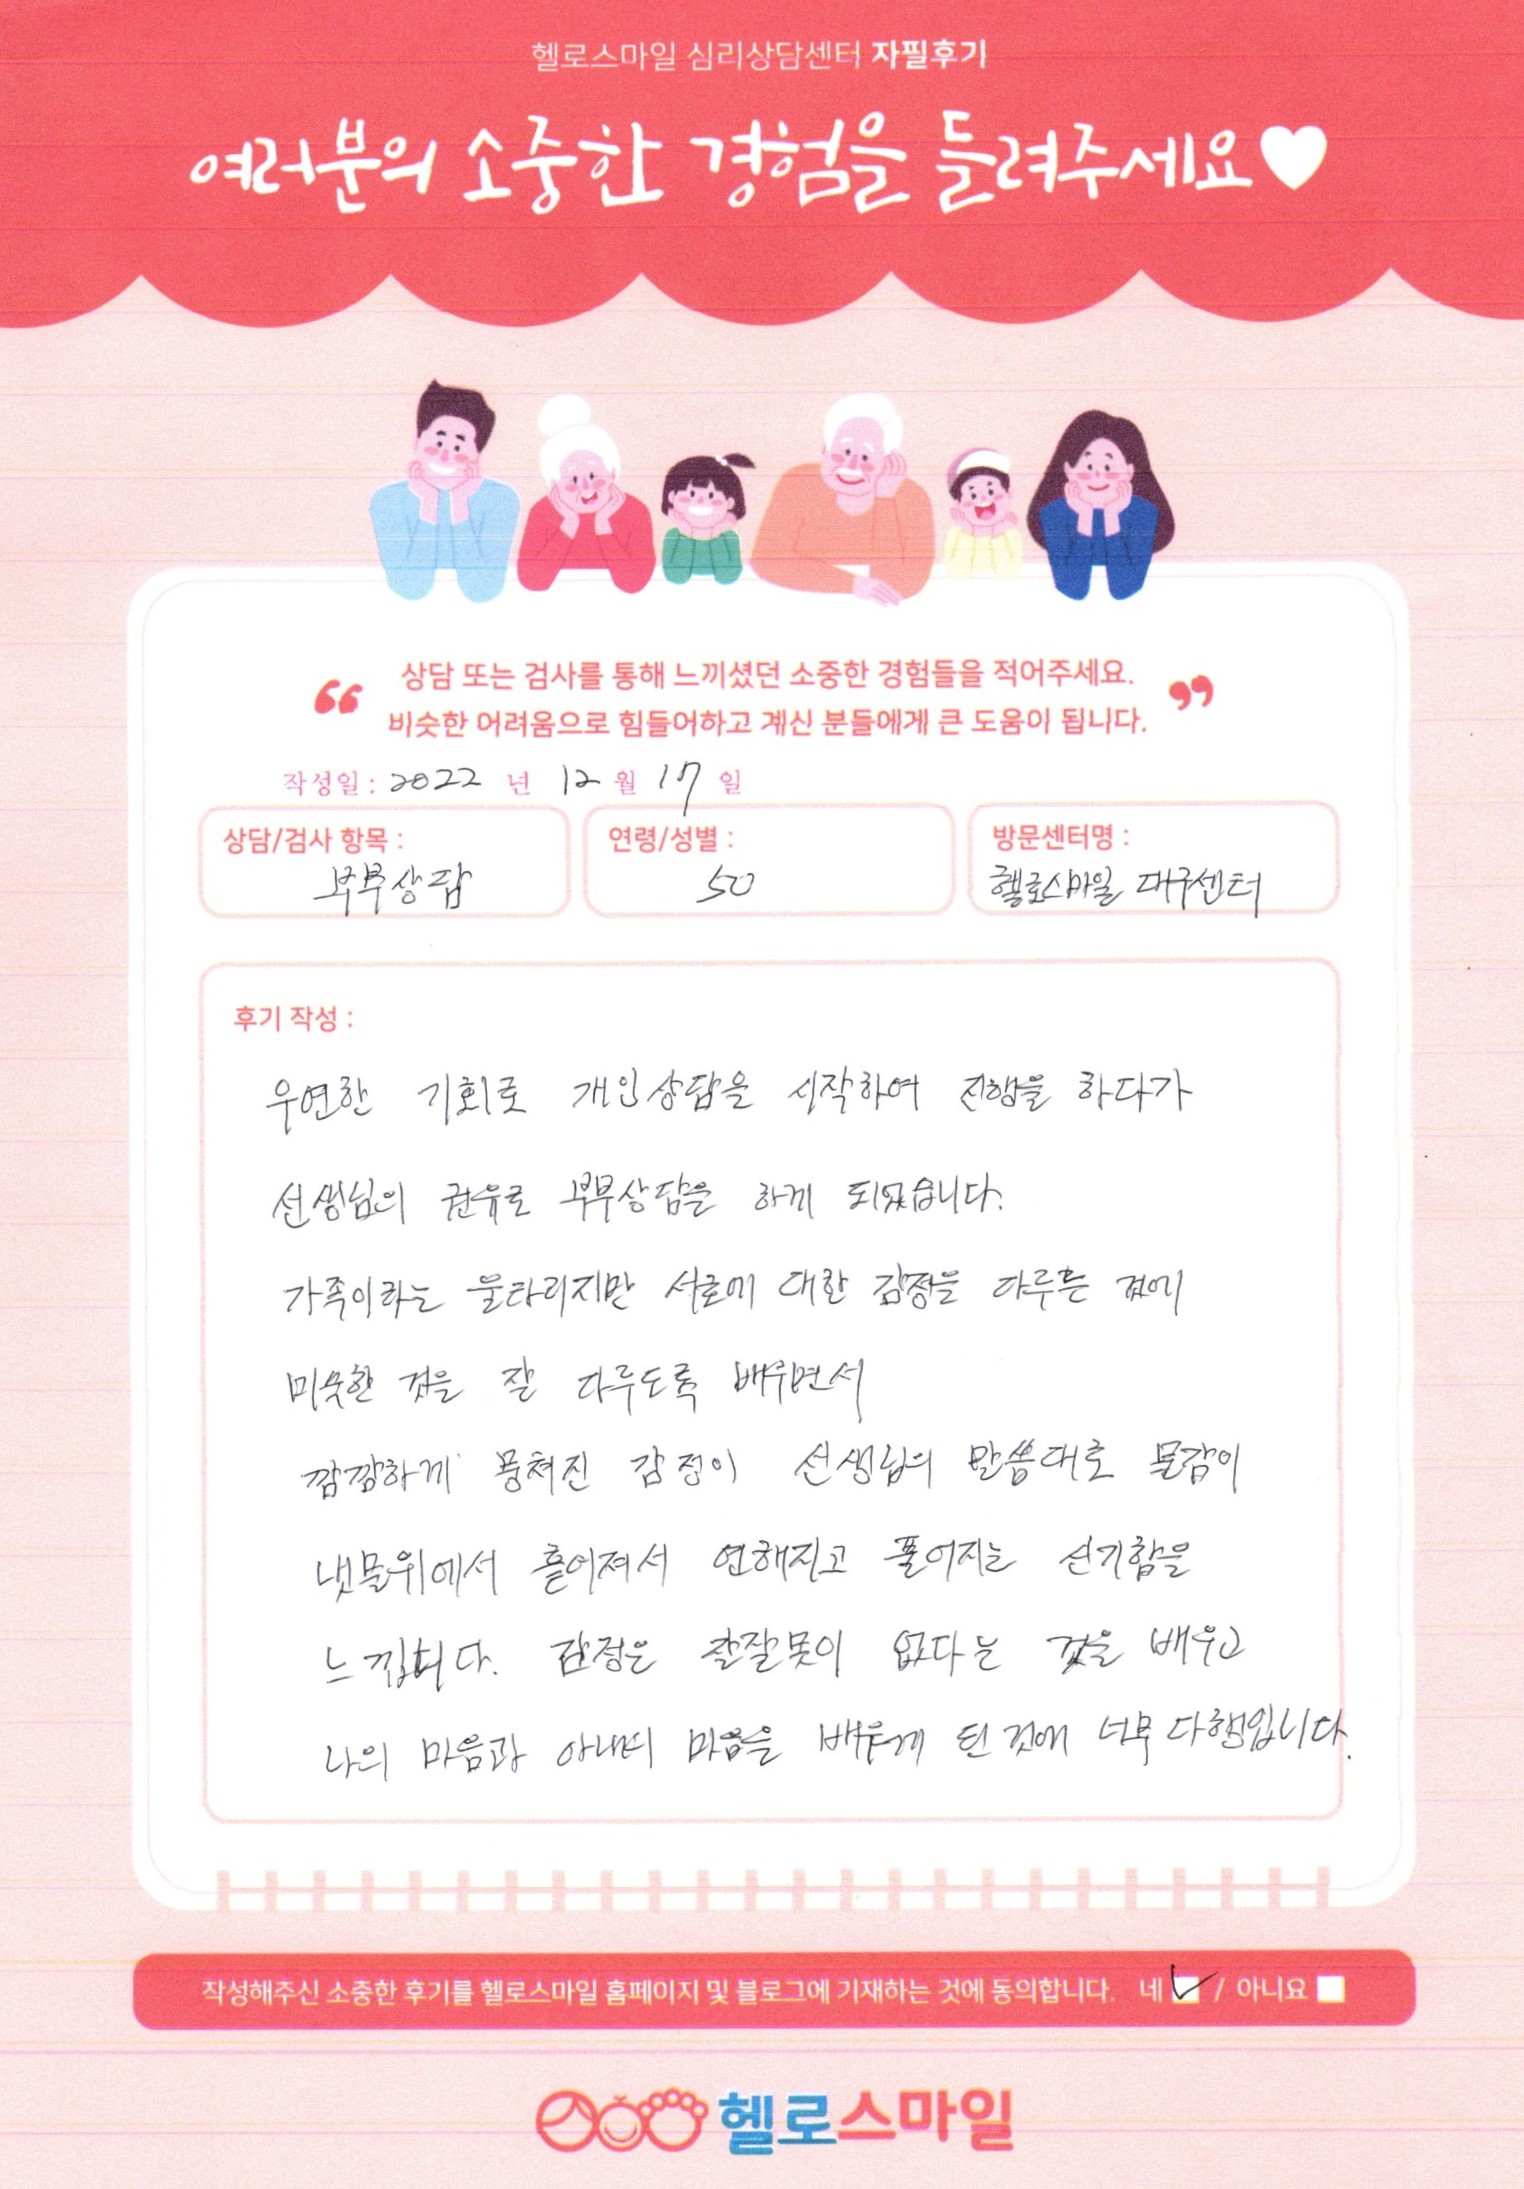 헬로스마일 심리상담센터 자필후기
여러분의 소중한 경험을 들려주세요♥
“ 상담 또는 검사를 통해 느끼셨던 소중한 경험들을 적어주세요. ”
비슷한 어려움으로 힘들어하고 계신 분들에게 큰 도움이 됩니다.
작성일 : 2022 년 12 월 17 일
상담/검사 항목 : 부부상담
연령/성별 : 50
방문센터명 : 헬로스마일 대구센터
후기 작성 :
우연한 기회로 개인상담을 시작하여 진행을 하다가
선생님의 권유로 부부상담을 하게 되었습니다.
가족이라는 울타리지만 서로에 대한 감정을 다루는 것에
미숙한 것을 잘 다루도록 배우면서
깜깜하게 뭉쳐진 감정이 선생님의 말씀대로 물감이
냇물위에서 흩어져서 연해지고 풀어지는 신기함을
느낍니다. 감정은 잘잘못이 없다는 것을 배우고
나의 마음과 아내의 마음을 배우게 된 것에 너무 다행입니다.
작성해주신 소중한 후기를 헬로스마일 홈페이지 및 블로그에 기재하는 것에 동의합니다. 네 / 아니요
헬로스마일